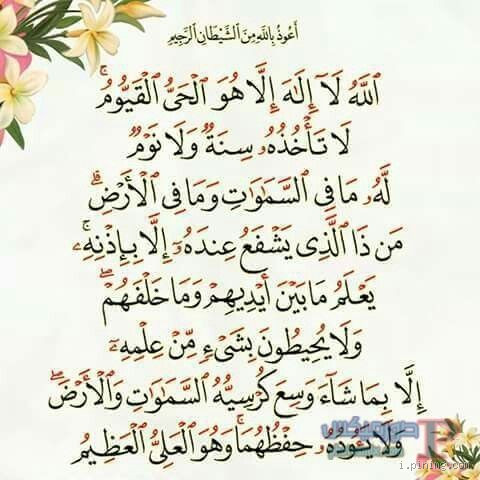 أَعُوذُ بِاللَّهِ مِنَ الشَّيْطَانِ الرَّجِيمِ
ٱللَّهُ لَآ إِلَٰهَ إِلَّا هُوَ ٱلْحَىُّ ٱلْقَيُّومُ ۚ
لَا تَأْخُذُهُۥ سِنَةٌ وَلَا نَوْمٌ ۚ
لَّهُۥ مَا فِى ٱلسَّمَٰوَٰتِ وَمَا فِى ٱلْأَرْضِ ۗ
مَن ذَا ٱلَّذِى يَشْفَعُ عِندَهُۥٓ إِلَّا بِإِذْنِهِۦ ۚ
يَعْلَمُ مَا بَيْنَ أَيْدِيهِمْ وَمَا خَلْفَهُمْ ۖ
وَلَا يُحِيطُونَ بِشَىْءٍ مِّنْ عِلْمِهِۦٓ
إِلَّا بِمَا شَآءَ ۚ وَسِعَ كُرْسِيُّهُ ٱلسَّمَٰوَٰتِ وَٱلْأَرْضَ ۖ
وَلَا يَـُٔودُهُۥ حِفْظُهُمَا ۚ وَهُوَ ٱلْعَلِىُّ ٱلْعَظِيمُ